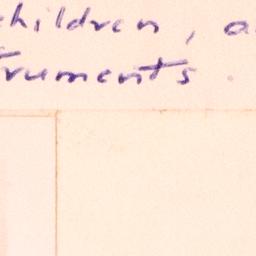 children, a
truments.